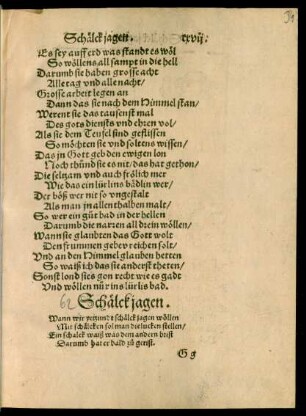 Schälck jagen. xxvij.
Es sey auff erd was standt es wöl
So wöllens all sampt in die hell
Darumb sie haben grosse acht
Alle tag vnd alle nacht/
Grosse arbeit legen an
Dann das sie nach dem himmel stan/
Werent sie das tausenst mal
Des gots diensts vnd ehren vol/
Als sie dem Teufel sind geflissen
So möchten sie vnd soltens wissen/
Das jn Gott geb den ewigen lon
Noch thünd sie es nit/das hat gethon/
Die seltzam vnd auch frölich mer
Wie das ein lürlins bädlin wer/
Der böß wer nit so vngestalt
Als man jn allenthalben malt/
So wer ein güt bad in der hellen
Darumb die narren all drein wöllen/
Wann sie glaubten das Gott wolt
Den frummen geben reichen solt/
Vnd an den Himmel glauben hetten
So waiß ich das sie anderst theten/
Sonst londs es gon recht wie es gadt
Vnd wöllen nur ins lürlis bad.
62 Schälck jagen.
Wann wir yetzundt schälck jagen wöllen
Mit schälcken sol man die lucken stellen/
Ein schalck waiß was dem andern brist
Darumb hat er bald zü gerist.
G g